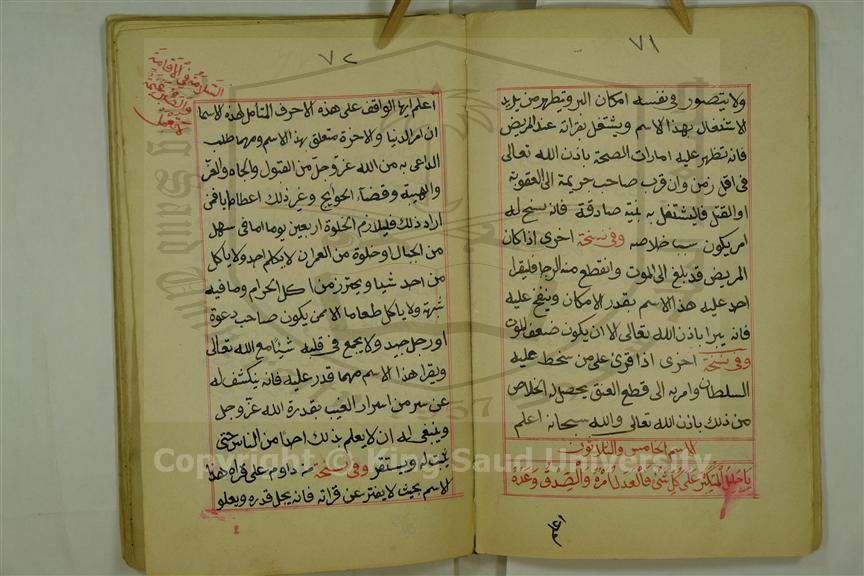 ٧١
ولا يتصور في نفسه امكان البرو يتطهر من يريد
الاشتغال بهذا الاسم ويشتغل بقراته عند المريض
فانه تظهر عليه امارات الصحة باذن الله تعالى
في اقل زمن وان قرب صاحب جريمة الى العقوبة
او القتل فاليشتغل به بنية صادقة فانه سنح له
امر يكون سببا خلاصه وفي نسخة اخرى اذا كان
المريض قد بلغ الى الموت وانقطع منه الرجا فليقرا
احد عليه هذا الاسم بقدر الامكان وينفخ عليه
فانه يبرا باذن الله تعالى الا ان يكون ضعف للموت
وفي نسخة اخرى اذا قرئ على من سخط عليه
السلطان وامر به الى قطع العنق يحصل له الخلاص
من ذلك باذن الله تعالى والله سبحانه اعلم
الاسم الخامس والثلاثون
يا جليل المتكبر على كل شئ فالعدل امره والصدق وعده
٧٢
السلامة في الاقامة
اعلم ايها الواقف على هذه الاحرف المتامل لهذه الاسما
ان امر الدنيا والاخرة متعلق بهذا الاسم ومهما طلب
الداعى به من الله عز وجل من القبول والجاه والعز
والهيبة وقضاء الحوايج وغير ذلك اعطاه فمن
اراد ذلك فليلازم الخلوة اربعين يوما اما في سهل
من الجبال او خلوة من العمران لا يكلم احد ولا ياكل
من احد شيا ويحترز من اكل الحرام وما فيه
شبهة ولا ياكل طعاما الا ممن يكون صاحب دعوة
او رجل جيد ولا يجمع في قلبه شيئا مع الله تعالى
ويقرا هذا الاسم مهما قدر عليه فانه يكشف له
عن سر من اسرار الغيب بقدرة الله عز وجل
وينبغى له ان لا يعلم بذلك احدا من الناس حتى
ويستقر وفي نسخة من داوم على قراة هذا
الاسم بحيث لا يفتر عن قراته فانه يجل قدره ويعلو
Copyright © King Saud University
1957